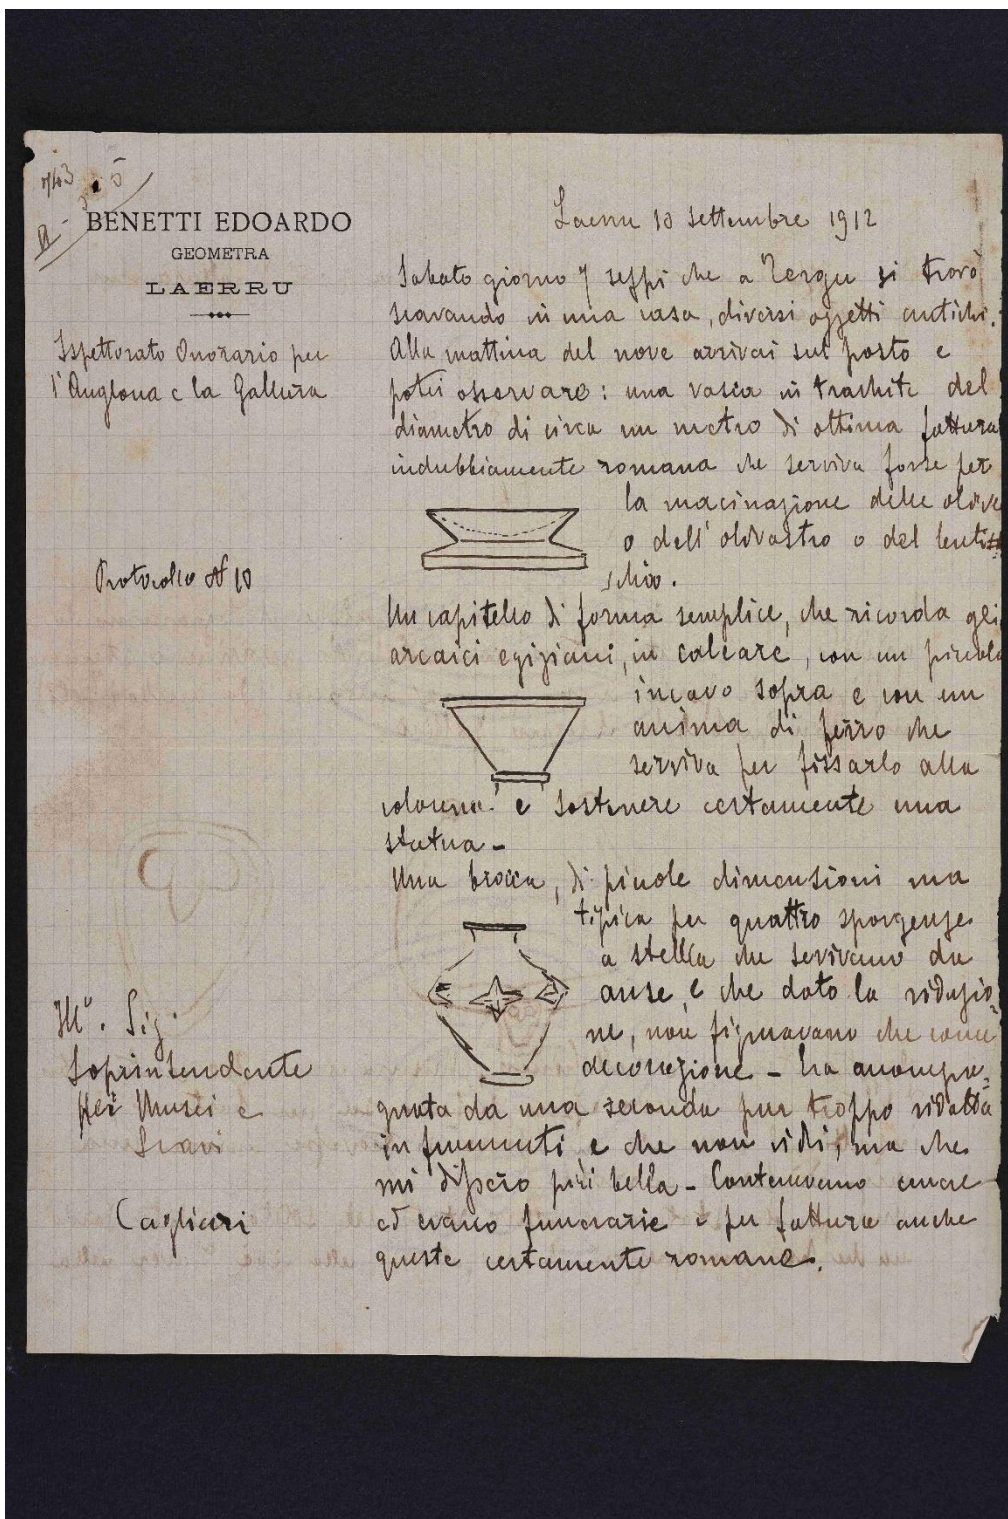 BENETTI EDOARDO
GEOMETRA
LAERRU
Ispettorato Onorario per
l'Anglona e la Gallura
Protocollo N 10
Ill°. Sig.
Soprintendente
Musei e
Scavi
Cagliari
Laerru 10 settembre 1912
Sabato giorno 7 seppi che a Tergu si trovò
scavando in una casa, diversi oggetti antichi.
Alla mattina del nove arrivai sul posto e
potei osservare: una vasca in trachite del
diametro di circa un metro di ottima fattura
indubbiamente romana che serviva forse per
la macinazione delle olive
o dell'olivastro o del lenti
schio.
Un capitello di forma semplice, che ricorda gli
arcaici egiziani, in calcare, con un piccolo
incavo sopra e con un
anima di ferro che
serviva per fissarlo alla
colonna e sostenere certamente una
statua -
Una brocca, di picole dimensioni ma
tipica per quattro sporgenze
a stella che servivano da
anse, e che dato la riduzio=
ne, non figuravano che come
decorazione - Era accompa=
gnata da una seconda pur troppo ridotta
in frammenti e che non vidi, ma che
mi dissero più bella - Contenevano cenere
ed erano funerarie e per fattura anche
queste certamente romane.